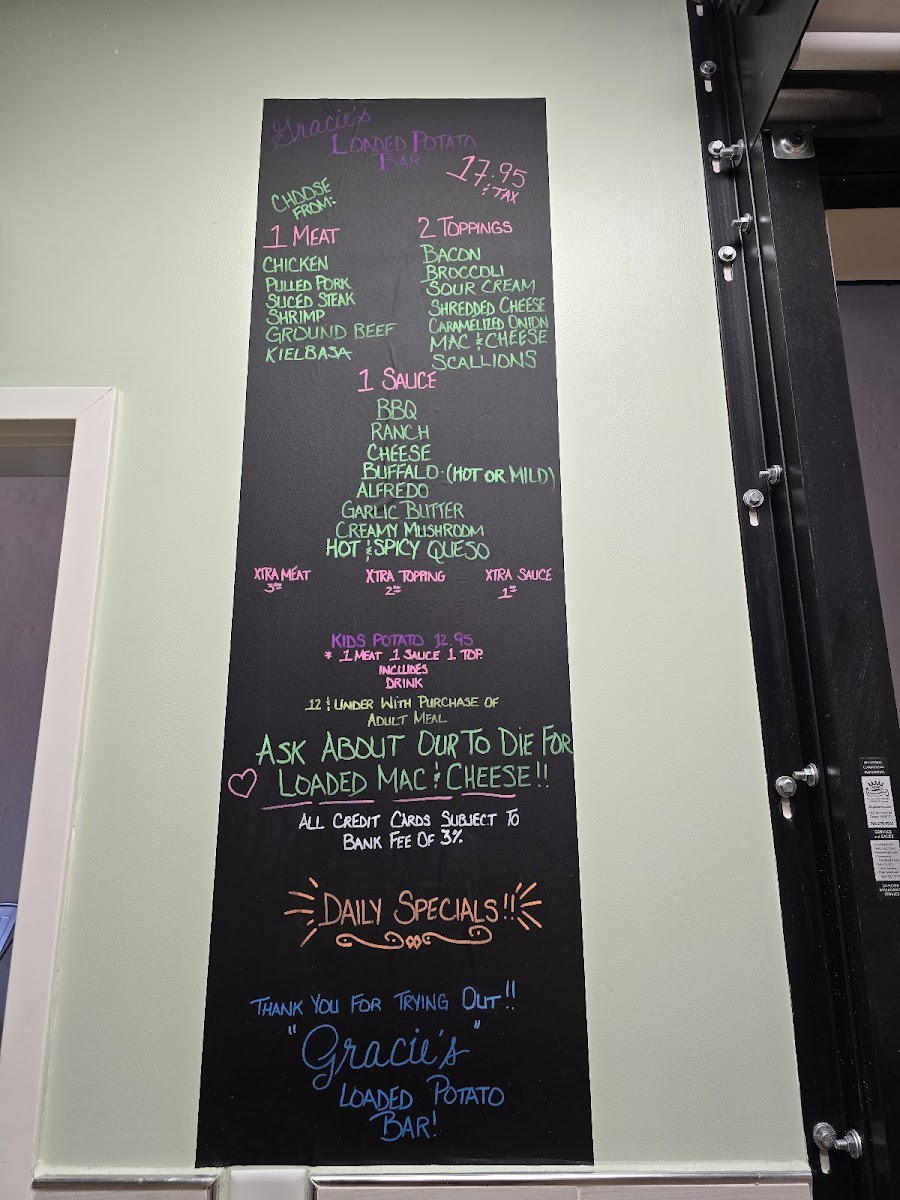 Gracie's
LOADED POTATO
BAR
17.95
& TAX
CHOOSE
FROM:
1 MEAT
CHICKEN
PULLED PORK
SLICED STEAK
SHRIMP
GROUND BEEF
KIELBASA
2 TOPPINGS
BACON
BROCCOLI
SOUR CREAM
SHREDDED CHEESE
CARAMELIZED ONION
MAC & CHEESE
SCALLIONS
1 SAUCE
BBQ
RANCH
CHEESE
BUFFALO · (HOT OR MILD)
ALFREDO
GARLIC BUTTER
CREAMY MUSHROOM
HOT & SPICY QUESO
XTRA MEAT
3.00
XTRA TOPPING
2.00
XTRA SAUCE
1.00
KIDS POTATO 12.95
* 1 MEAT 1 SAUCE 1 TOP.
INCLUDES
DRINK
12 & UNDER WITH PURCHASE OF
ADULT MEAL
ASK ABOUT OUR TO DIE FOR
LOADED MAC & CHEESE!!
ALL CREDIT CARDS SUBJECT TO
BANK FEE OF 3%
DAILY SPECIALS!!
THANK YOU FOR TRYING OUT!!
"Gracie's"
LOADED POTATO
BAR!
SERVICE